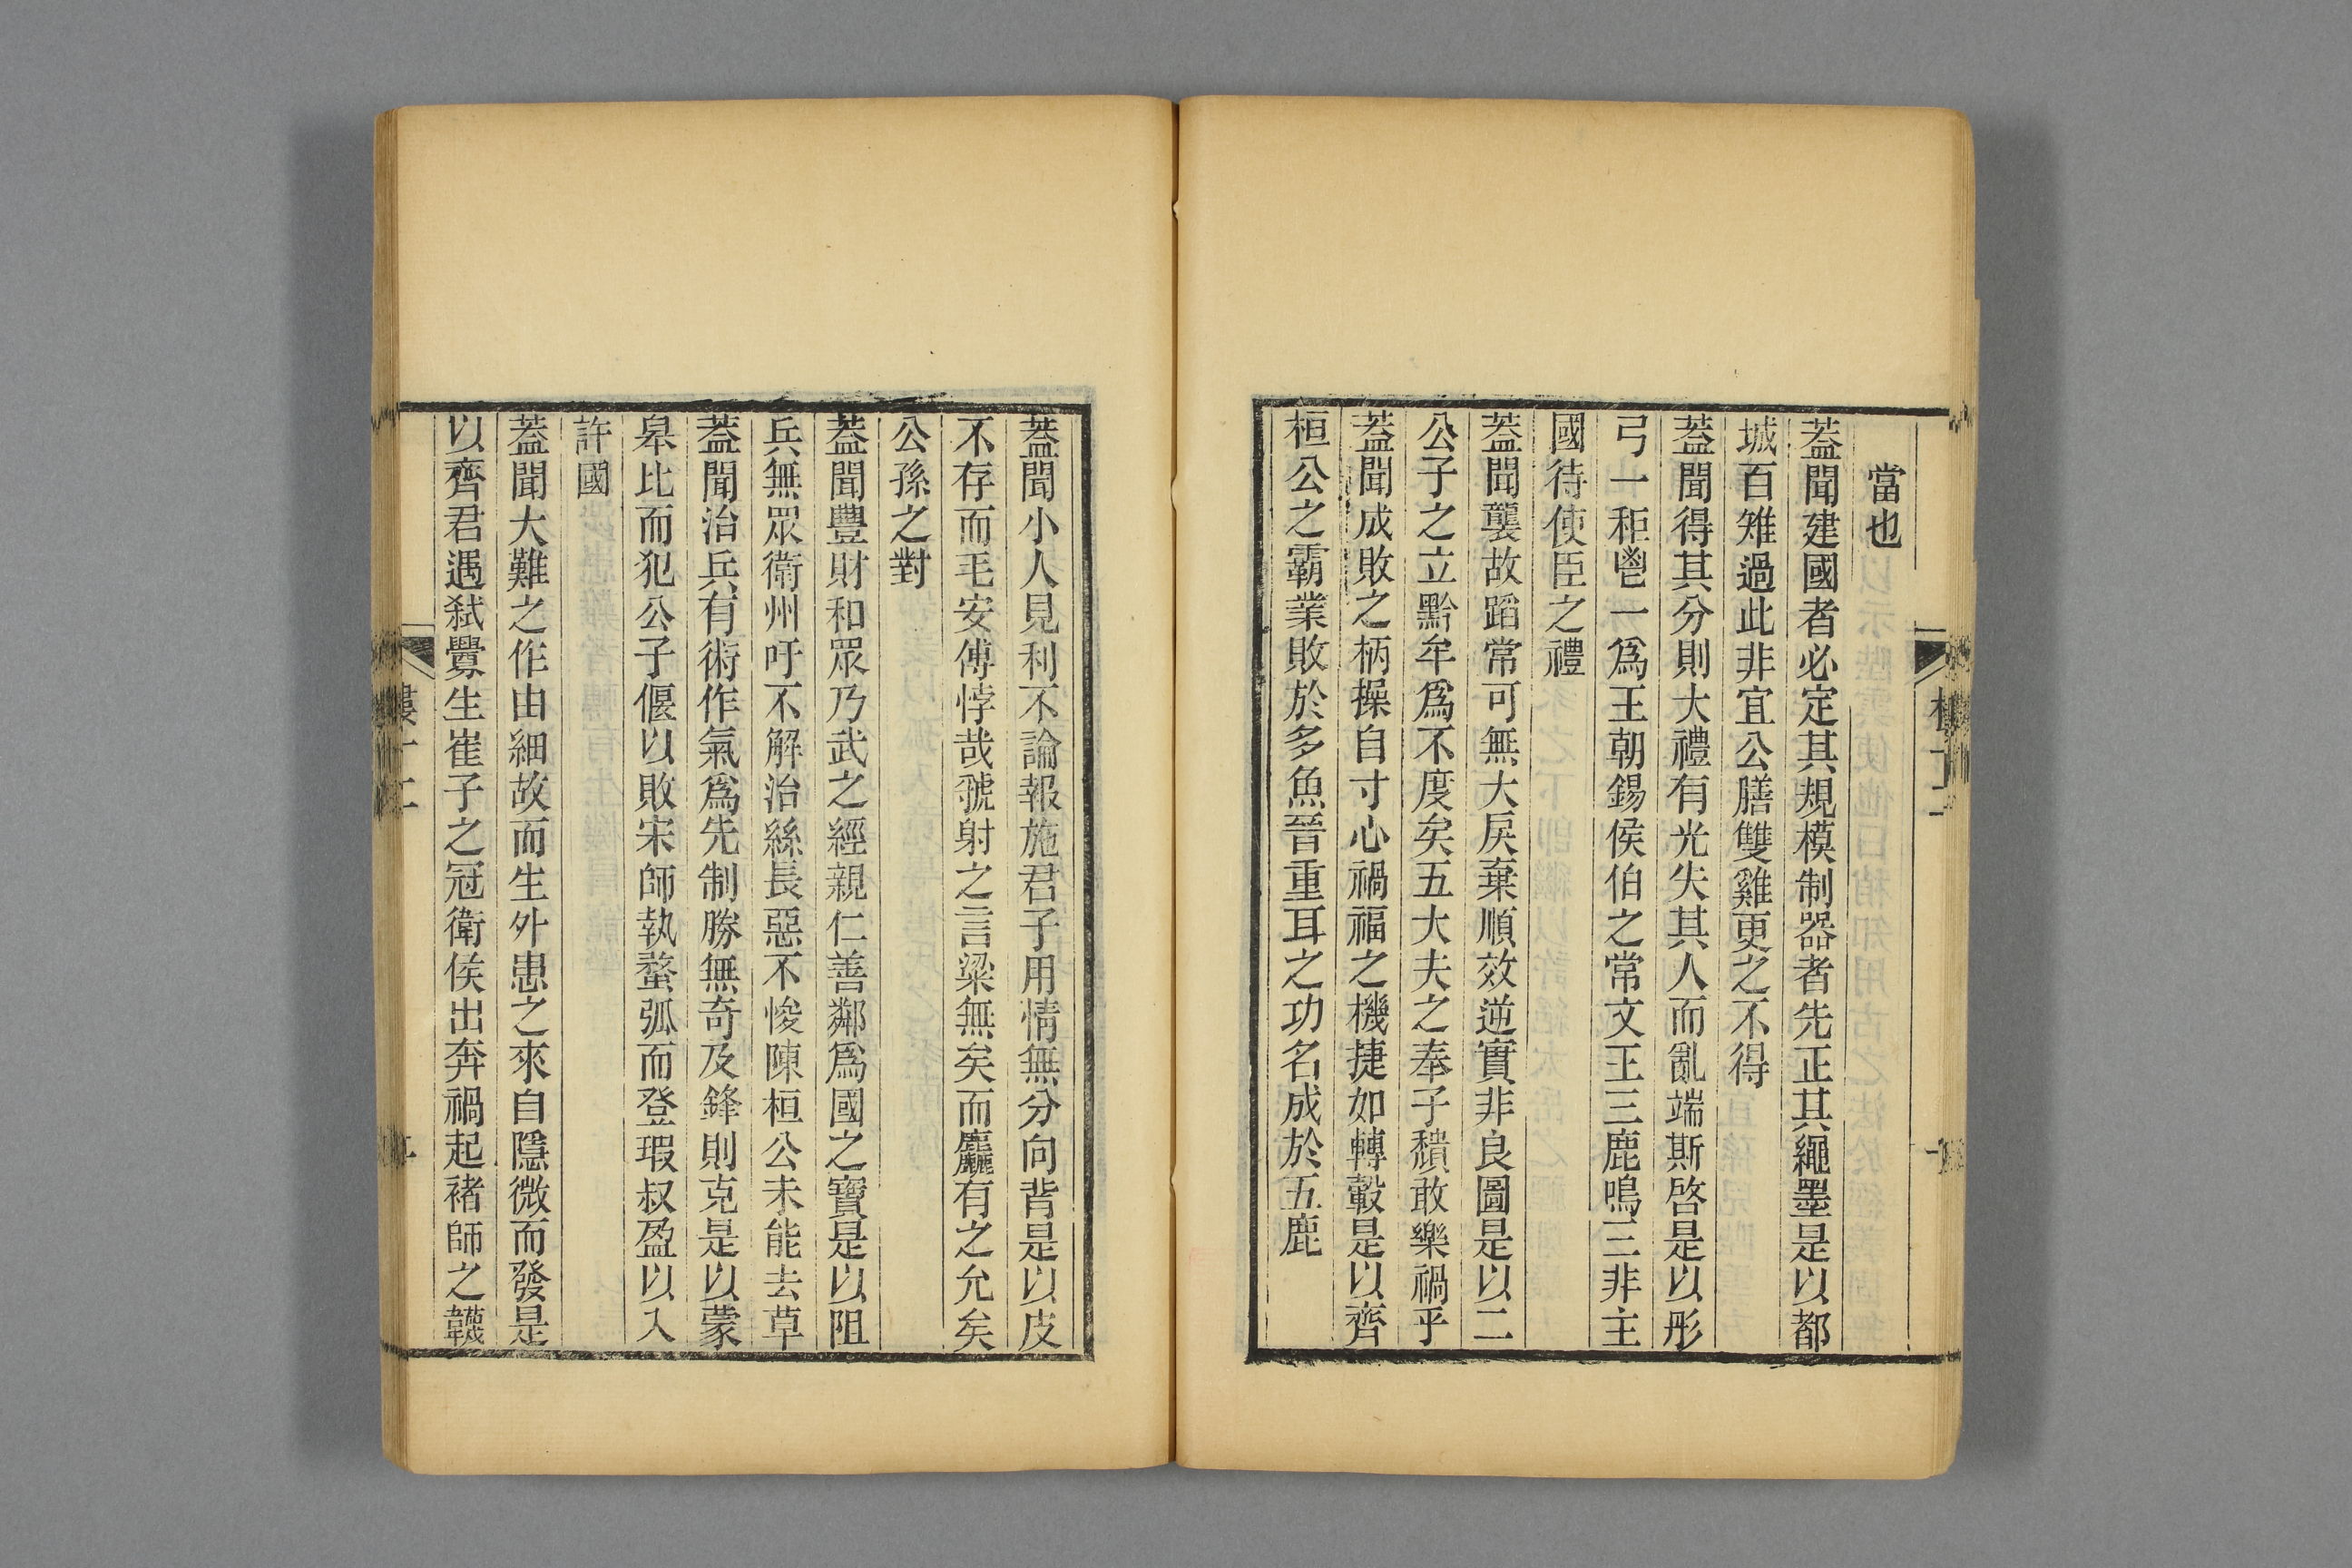 當也
蓋聞建國者必定其規模制器者先正其繩墨是以都
城百雉過此非宜公膳雙雞更之不得
蓋聞得其分則大禮有光失其人而亂端斯啓是以彤
弓一秬鬯一爲王朝錫侯伯之常文王三鹿鳴三非主
國待使臣之禮
蓋聞襲故蹈常可無大戾棄順效逆實非良圖是以二
公子之立黔牟爲不度矣五大夫之奉子穨敢樂禍乎
蓋聞成敗之柄操自寸心禍福之機捷如轉轂是以齊
桓公之霸業敗於多魚晉重耳之功名成於五鹿
蓋聞小人見利不論報施君子用情無分向背是以皮
不存而毛安傅悖哉虢射之言粱無矣而麤有之允矣
公孫之對
蓋聞豐財和眾乃武之經親仁善鄰爲國之寶是以阻
兵無眾衛州吁不解治絲長惡不悛陳桓公未能去草
蓋聞治兵有術作氣爲先制勝無奇及鋒則克是以蒙
皋比而犯公子偃以敗宋師執蝥弧而登瑕叔盈以入
許國
蓋聞大難之作由細故而生外患之來自隱微而發是
以齊君遇弑釁生崔子之冠衛侯出奔禍起褚師之韈